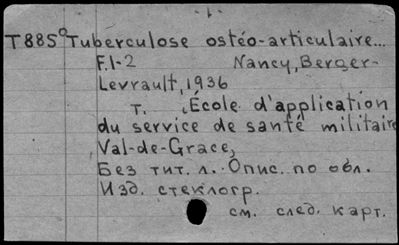 - 1 -
T885° Tuberculose ostéo-articulaire...
F.1-2 Nancy, Berger-
Levrault, 1936
т. École d'application
du service de santé militaire
Val-de-Grace,
Без тит. л. Опис. по обл.
Изд. стеклогр.
см. след. карт.